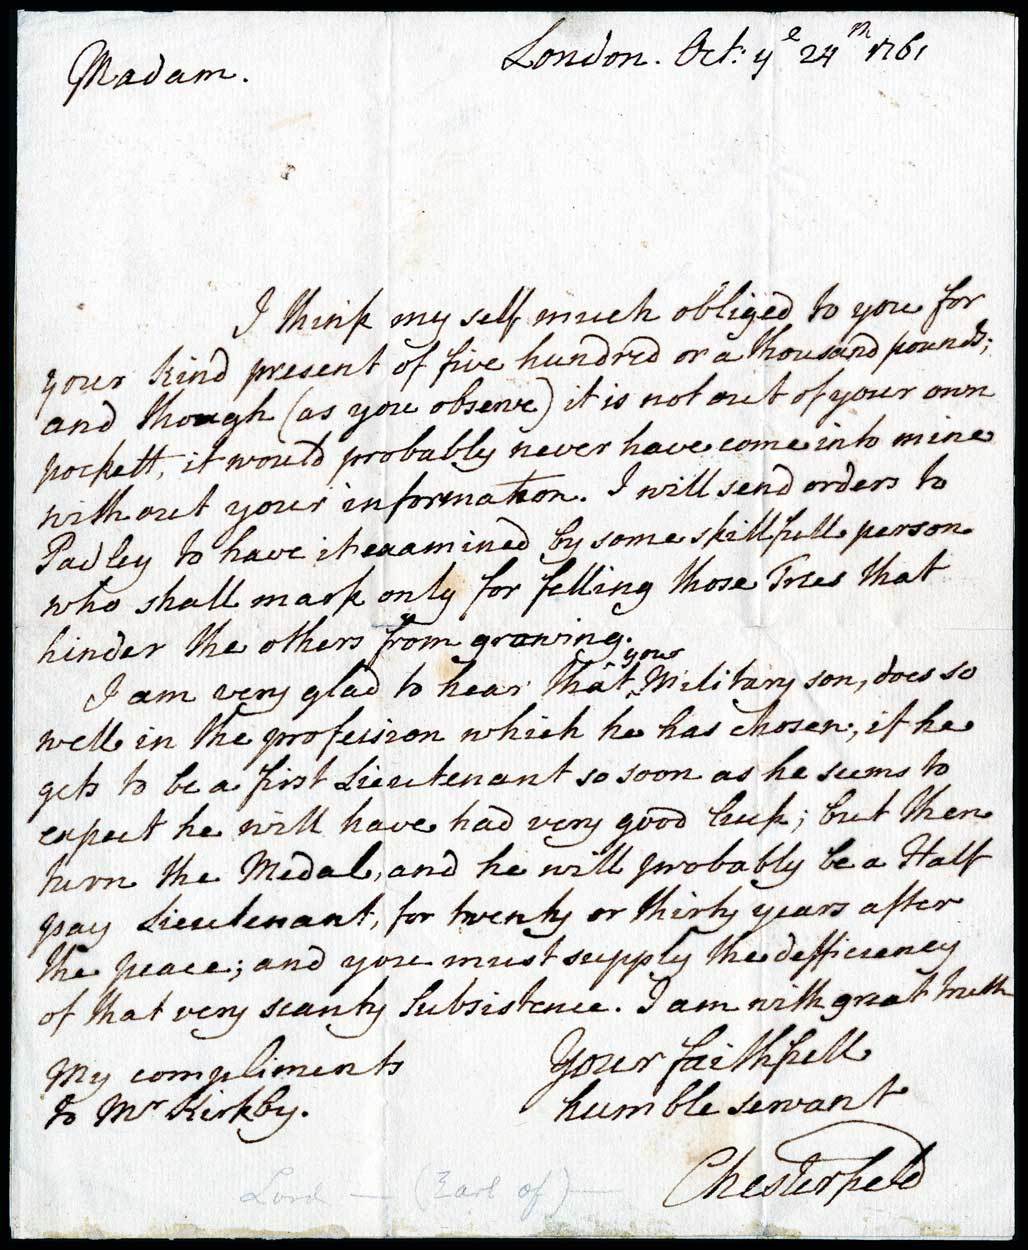 London. Oct: yᵉ 24ᵗʰ 1761
Madam.
I think my self much obliged to you for
your kind present of five hundred or a thousand pounds;
and though (as you observe) it is not out of your own
pockett, it would probably never have come into mine
without your information. I will send orders to
Padley to have it examined by some skillfull person
who shall mark only for felling those Trees that
hinder the others from growing.
I am very glad to hear that your Military son, does so
well in the profession which he has chosen; if he
gets to be a first Lieutenant so soon as he seems to
expect he will have had very good luck; but then
turn the Medal, and he will probably be a Half
pay Lieutenant, for twenty or thirty years after
the peace; and you must supply the defficiency
of that very scanty subsistence. I am with great truth
Your faithfull
humble servant
Chesterfield
My compliments
to Mr Kirkby.
Lord — (Earl of) —